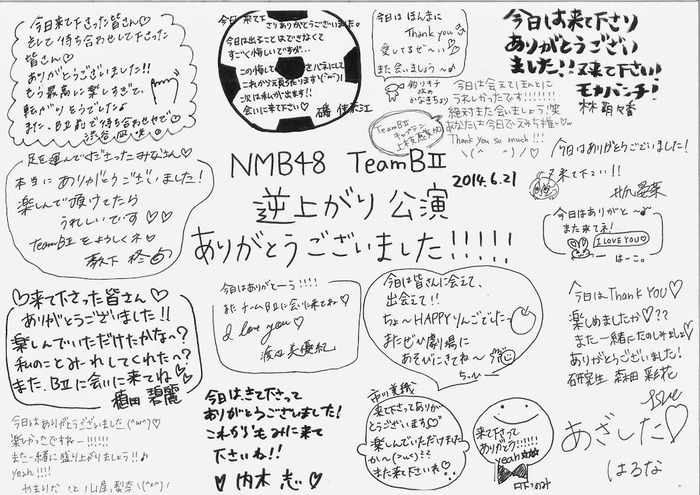 今日来て下さった皆さん♡
そして待ち合わせして下さった
皆さん♡
ありがとうございました!!
もう最高に楽しすぎて、
転がりそうでしたよ
また、BⅡ前で待ち合わせせで♡
渋谷凪咲
今日来て下さりありがとうございました。
今日は出ることはできなくて
すごく悔しいですが…
この悔しさを
これから头張ります
次は私が出ます!!
会いに来て下さい♡
磯佳奈江
今日は ほんまに
Thank you
愛してるぜ〜い♡
また会いましょう〜
釣りキチ
今日は会えてほんとに
うれしかったです!!!!!!!
絶対また会いましょう!笑
Thank You so much!!!
TeamBⅡ
キャプテン
今日も来て下さり
ありがとうござい
ました!!又来て下さい!
モカパンチ!
林 萌々香
足を運んで下さったみなさん♡
本当にありがとうございました!
楽しんで頂けてたら
うれしいです♡♡
TeamBⅡをよろしくネ
NMB48 TeamBⅡ
2014.6.21
逆上がり 公演
ありがとうございました!!!!!!
今日はありがとうございました!
又来て下さい!!
今日はありがと〜
また来てネ!
I LOVE YOU♡
はーこ。
♡来て下さった皆さん♡
ありがとうございました!!
楽しんでいただけたかな〜?
私のことみーれしてくれた〜?
また、BⅡに会いに来てね♡
植田 碧麗
今日はありがとーう!!!!
またチームBⅡに会いに来てね♡
I love you♡
渡辺美優紀
今日は皆さんに会えて、
出会えて!!
ちょ〜HAPPYりんごでしたっ
またぜひ劇場に
あそびにきてね〜♡
ちっひー
今日はThank YOU♡
楽しめましたか♡??
また一緒にたのしみましょ♡
ありがとうございました!
研究生 森田 彩花
Love
今日はありがとうございました(^ω^)♪
楽しかったですねー!!!!!!
また一緒に盛り上がりましょう!!♪
yeah!!!!
今日はきて下さって
ありがとうございました!
これからもみに来て
下さいね!!
♡内木 志♡
市川美織
来て下さってありが
とうございます♡
楽しんでいただけました
か〜(>ω<)??
また来て下さいね♡
来て下さって
ありがとう!!!!!!
yeah☆☆☆
あざした♡
はるな